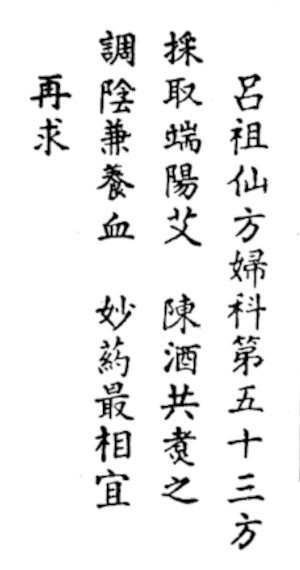 呂祖仙方婦科第五十三方
採取端陽艾　陳酒共煑之
調陰兼養血　妙葯最相宜
再求